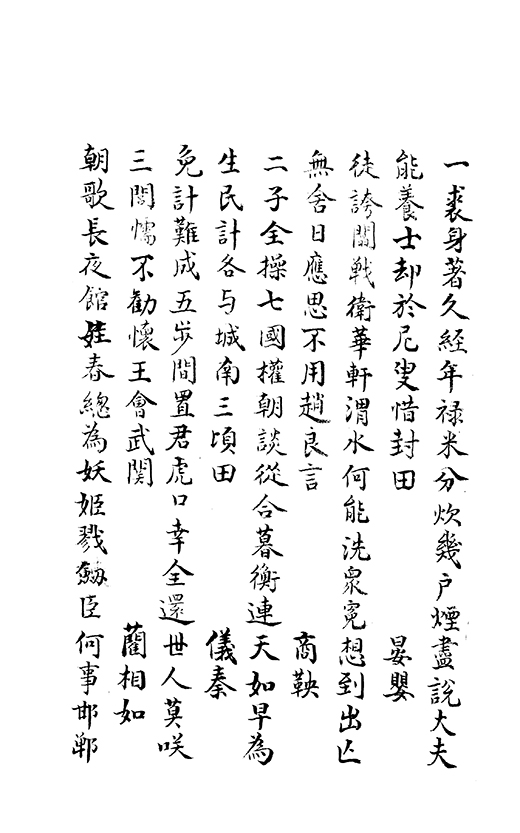 一裘身著久經年禄米分炊幾户煙盡說大夫
能養士却於尼叟惜封田　晏嬰
徒誇闘戰衛華軒渭水何能洗衆寃想到出亡
無舍日應思不用趙良言　商鞅
二子全操七國權朝談從合暮衡連天如早為
生民計各与城南三頃田　儀秦
免計難成五步間置君虎口幸全還世人莫咲
三閭懦不勸懷王會武関　藺相如
朝歌長夜館娃春總為妖姬戮劒臣何事邯鄲